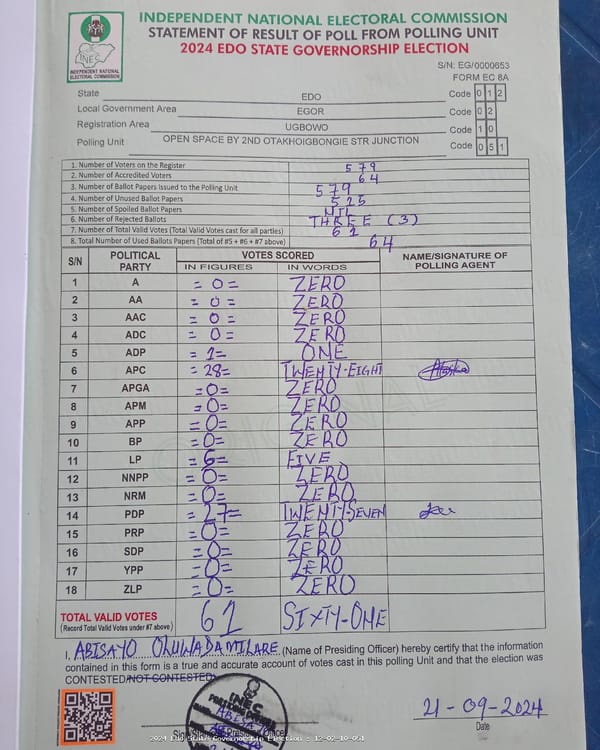 INDEPENDENT NATIONAL ELECTORAL COMMISSION
STATEMENT OF RESULT OF POLL FROM POLLING UNIT
2024 EDO STATE GOVERNORSHIP ELECTION
INEC
INDEPENDENT NATIONAL ELECTORAL COMMISSION
S/N: EG/0000653
FORM EC 8A
State EDO Code 0 1 2
Local Government Area EGOR Code 0 2
Registration Area UGBOWO Code 1 0
Polling Unit OPEN SPACE BY 2ND OTAKHOIGBONGIE STR JUNCTION Code 0 5 1
1. Number of Voters on the Register 579
2. Number of Accredited Voters 64
3. Number of Ballot Papers Issued to the Polling Unit 579
4. Number of Unused Ballot Papers 515
5. Number of Spoiled Ballot Papers NIL
6. Number of Rejected Ballots THREE (3)
7. Number of Total Valid Votes (Total Valid Votes cast for all parties) 61
8. Total Number of Used Ballots Papers (Total of #5 + #6 + #7 above) 64
S/N POLITICAL PARTY VOTES SCORED NAME/SIGNATURE OF POLLING AGENT
IN FIGURES IN WORDS
1 A =0= ZERO
2 AA =0= ZERO
3 AAC =0= ZERO
4 ADC =0= ZERO
5 ADP =1= ONE
6 APC =28= TWENTY-EIGHT
7 APGA =0= ZERO
8 APM =0= ZERO
9 APP =0= ZERO
10 BP =0= ZERO
11 LP =6= FIVE
12 NNPP =0= ZERO
13 NRM =0= ZERO
14 PDP =27= TWENTY-SEVEN
15 PRP =0= ZERO
16 SDP =0= ZERO
17 YPP =0= ZERO
18 ZLP =0= ZERO
TOTAL VALID VOTES 61 SIXTY-ONE
(Record Total Valid Votes under #7 above)
I, ABISAYO OLUWADAMILARE (Name of Presiding Officer) hereby certify that the information
contained in this form is a true and accurate account of votes cast in this polling Unit and that the election was
CONTESTED/NOT CONTESTED
INEC
21-09-2024
Date
2024 Edo State Governorship Election - 12-02-10-051